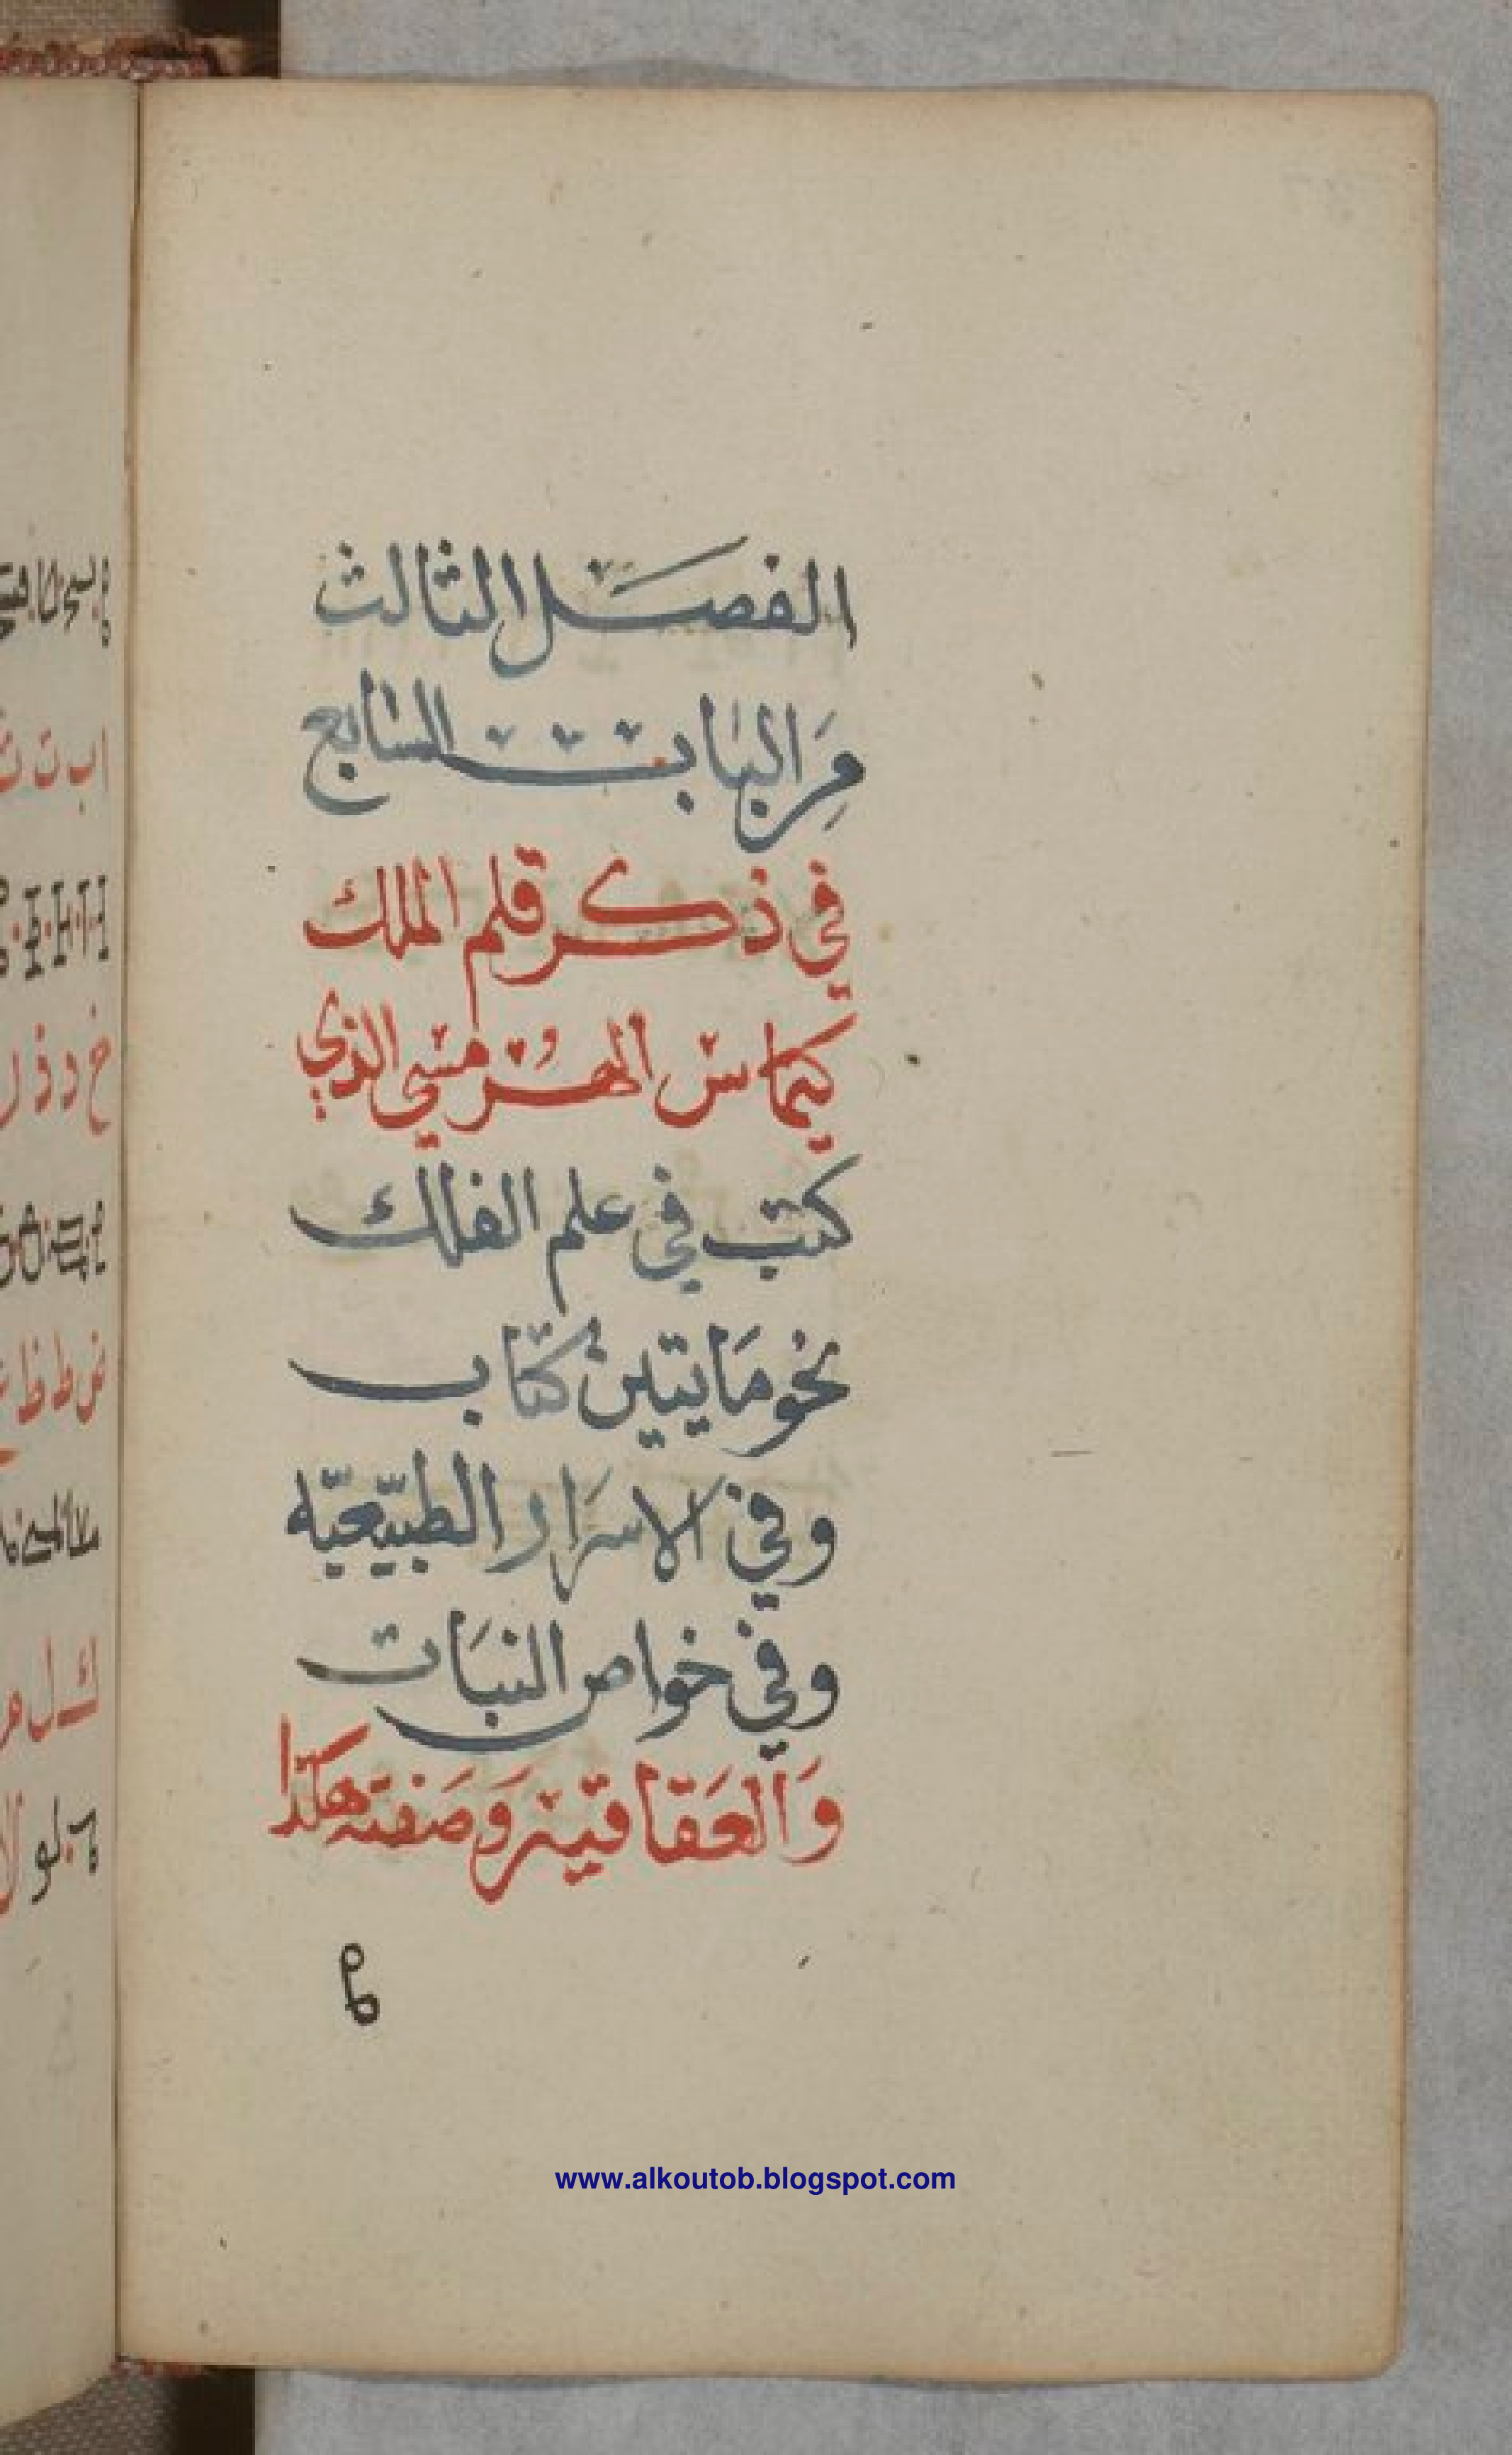 الفصل الثالث
من الباب السابع
في ذكر قلم الملك
كيماس الهرمسي الذي
كتب في علم الفلك
نحو مايتين كتاب
وفي الاسرار الطبيعيه
وفي خواص النبات
والعقاقير وصفته هكذا
اب ت ث
خ د ذ ر
ض ط ظ ع
ك ل م
لا
www.alkoutob.blogspot.com